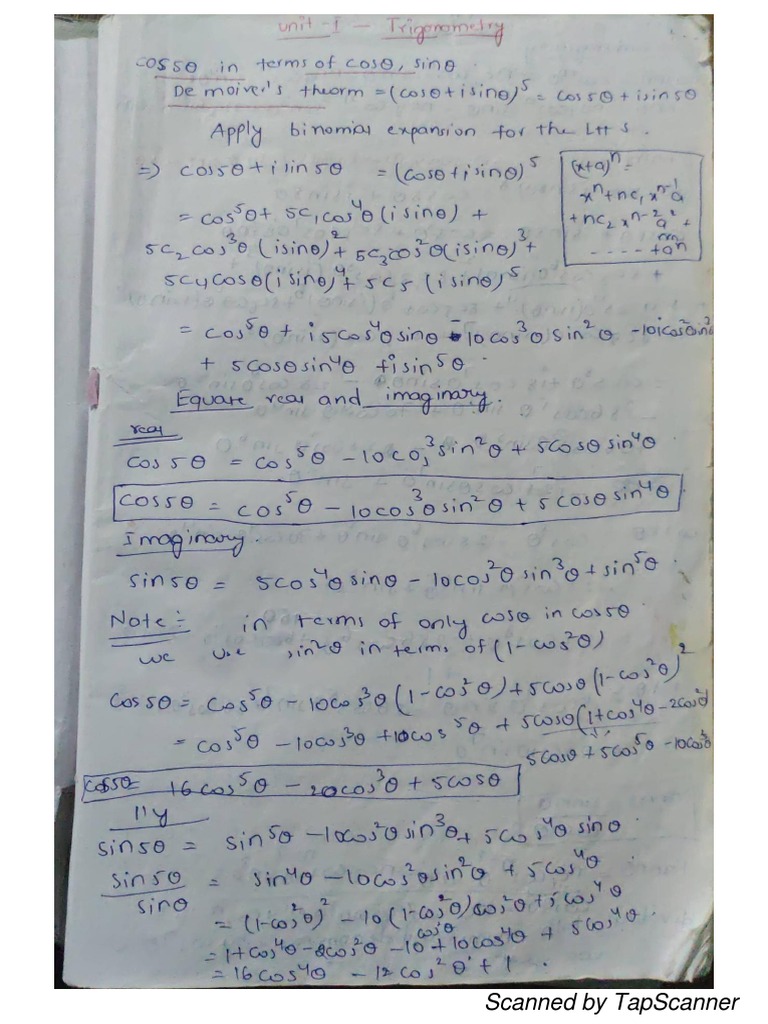 Unit-I - Trigonometry
cos5θ in terms of cosθ, sinθ.
De moiver's theorm = (cosθ+isinθ)⁵ = cos5θ + isin5θ
Apply binomial expansion for the LHS.
=> cos5θ+isin5θ = (cosθ+isinθ)⁵
(x+a)ⁿ =
xⁿ+nc₁xⁿ⁻¹a
+nc₂xⁿ⁻²a²+
.....+aⁿ
= cos⁵θ+ 5c₁cos⁴θ(isinθ) +
5c₂cos³θ(isinθ)²+ 5c₃cos²θ(isinθ)³+
5c₄cosθ(isinθ)⁴+ 5c₅(isinθ)⁵
+
= cos⁵θ + i5cos⁴θsinθ -10cos³θsin²θ -10icos²θsin³
+ 5cosθsin⁴θ +isin⁵θ.
Equate real and imaginary.
real
cos5θ = cos⁵θ -10cos³sin²θ + 5cosθsin⁴θ
cos5θ = cos⁵θ - 10cos³θsin²θ + 5cosθsin⁴θ
Imaginary.
sin5θ = 5cos⁴θsinθ - 10cos²θsin³θ+sin⁵θ.
Note:- in terms of only cosθ in cos5θ.
we use sin²θ in terms of (1-cos²θ)
cos5θ = cos⁵θ - 10cos³θ(1-cos²θ)+5cosθ(1-cos²θ)²
= cos⁵θ -10cos³θ +10cos⁵θ + 5cosθ(1+cos⁴θ-2cos²θ)
5cosθ+5cos⁵θ-10cos³
cos5θ= 16cos⁵θ - 20cos³θ + 5cosθ
lll'y
sin5θ = sin5θ -10cos²θsin³θ+ 5cos⁴θ sinθ.
sin5θ/sinθ = sin⁴θ -10cos²θsin²θ + 5cos⁴θ
= (1-cos²θ)² - 10(1-cos²θ)cos²θ+5cos⁴θ
= 1+cos⁴θ-2cos²θ -10cos²θ+10cos⁴θ + 5cos⁴θ.
= 16cos⁴θ - 12cos²θ + 1.
Scanned by TapScanner